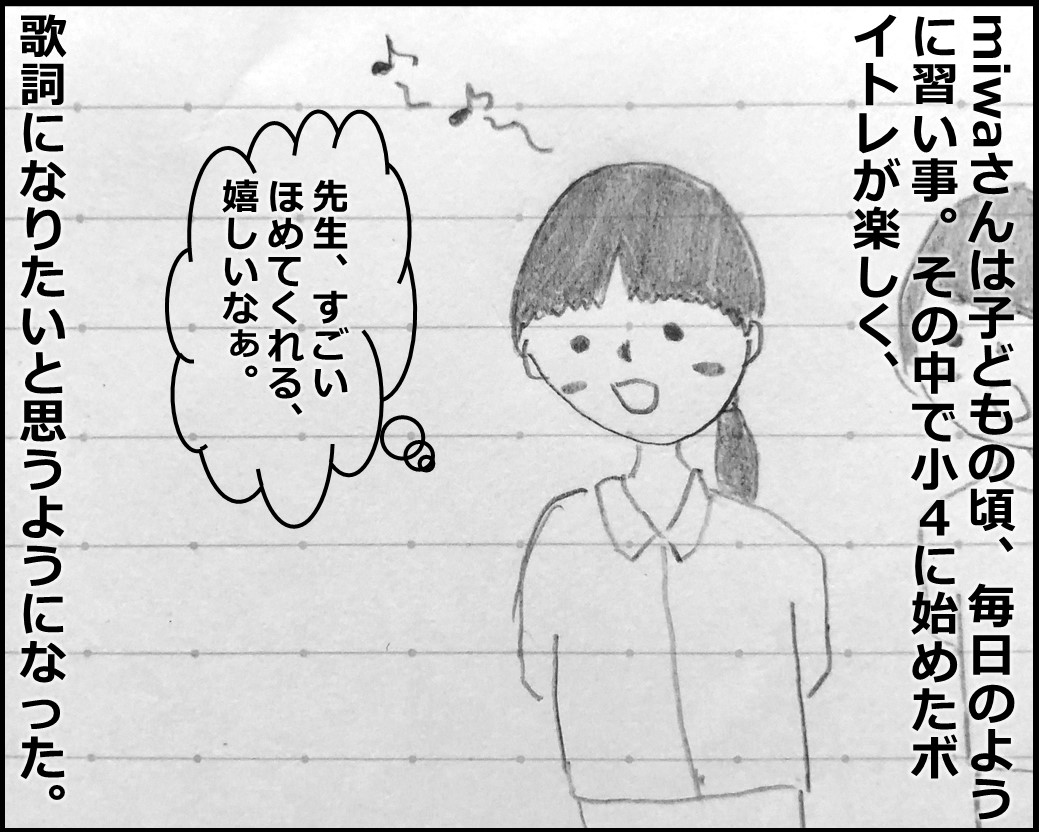 miwaさんは子どもの頃、毎日のよう
に習い事。その中で小4に始めたボ
イトレが楽しく、
先生、すごい
ほめてくれる、
嬉しいなぁ。
歌詞になりたいと思うようになった。